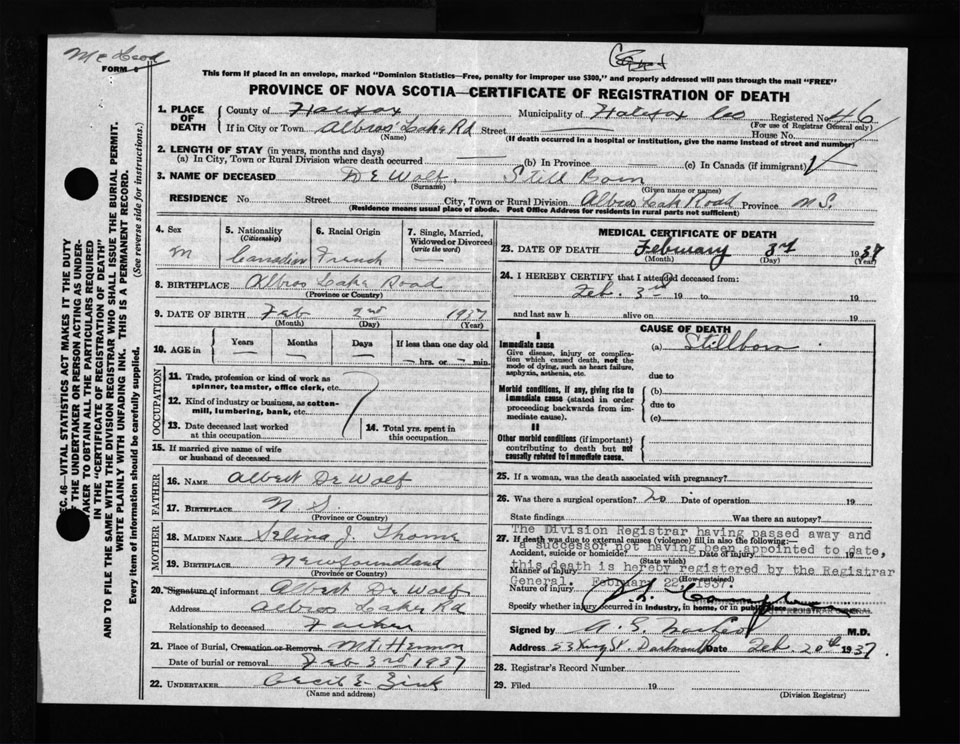 FORM 6
This form if placed in an envelope, marked "Dominion Statistics—Free, penalty for improper use $300," and properly addressed will pass through the mail "FREE"
PROVINCE OF NOVA SCOTIA—CERTIFICATE OF REGISTRATION OF DEATH
SEC. 46—VITAL STATISTICS ACT MAKES IT THE DUTY
OF THE UNDERTAKER OR PERSON ACTING AS UNDER-
TAKER TO OBTAIN ALL THE PARTICULARS REQUIRED
IN THE "CERTIFICATE OF REGISTRATION OF DEATH"
AND TO FILE THE SAME WITH THE DIVISION REGISTRAR WHO SHALL ISSUE THE BURIAL PERMIT.
WRITE PLAINLY WITH UNFADING INK. THIS IS A PERMANENT RECORD.
Every item of information should be carefully supplied. (See reverse side for instructions.)
1. PLACE OF DEATH County of Halifax Municipality of Halifax Co Registered No. 46
(For use of Registrar General only)
If in City or Town Albros Lake Rd Street House No.
(Name) (If death occurred in a hospital or institution, give the name instead of street and number)
2. LENGTH OF STAY (in years, months and days)
(a) In City, Town or Rural Division where death occurred — (b) In Province (c) In Canada (if immigrant)
3. NAME OF DECEASED De Wolf Still Born
(Surname) (Given name or names)
RESIDENCE No. Street City, Town or Rural Division Albros Lake Road Province N.S.
(Residence means usual place of abode. Post Office Address for residents in rural parts not sufficient)
4. Sex 5. Nationality (Citizenship) 6. Racial Origin 7. Single, Married, Widowed or Divorced (write the word)
M Canadian French —
8. BIRTHPLACE Albros Lake Road
(Province or Country)
9. DATE OF BIRTH Feb 2nd 1937
(Month) (Day) (Year)
10. AGE in Years Months Days If less than one day old
— — — — hrs. or — min.
OCCUPATION
11. Trade, profession or kind of work as spinner, teamster, office clerk, etc.
12. Kind of industry or business, as cotton-mill, lumbering, bank, etc.
13. Date deceased last worked at this occupation
14. Total yrs. spent in this occupation
15. If married give name of wife or husband of deceased
FATHER
16. NAME Albert De Wolf
17. BIRTHPLACE N S.
(Province or Country)
MOTHER
18. MAIDEN NAME Selena J. Thorne
19. BIRTHPLACE Newfoundland
(Province or Country)
20. Signature of informant Albert De Wolf
Address Albros Lake Rd
Relationship to deceased Father
21. Place of Burial, Cremation or Removal Mt. Hermon
Date of burial or removal Feb 3rd 1937
22. UNDERTAKER Cecil E. Zink
(Name and address)
MEDICAL CERTIFICATE OF DEATH
23. DATE OF DEATH February 3rd 1937
(Month) (Day) (Year)
24. I HEREBY CERTIFY that I attended deceased from:
Feb. 3rd 19 to 19
and last saw h alive on 19
CAUSE OF DEATH
I
Immediate cause (a) Stillborn
Give disease, injury or complication which caused death, not the mode of dying, such as heart failure, asphyxia, asthenia, etc.
due to
Morbid conditions, if any, giving rise to immediate cause (stated in order proceeding backwards from immediate cause).
(b)
due to
(c)
II
Other morbid conditions (if important) contributing to death but not causally related to immediate cause.
25. If a woman, was the death associated with pregnancy?
26. Was there a surgical operation? No Date of operation 19
State findings Was there an autopsy?
27. If death was due to external causes (violence) fill in also the following:—
Accident, suicide or homicide? Date of injury 19
(State which)
Manner of injury
(How sustained)
Nature of injury
Specify whether injury occurred in industry, in home, or in public place
The Division Registrar having passed away and
a successor not having been appointed to date,
this death is hereby registered by the Registrar
General. February 22 1937.
REGISTRAR GENERAL
Signed by M.D.
Address 53 King St. Dartmouth Date Feb. 20th 1937
28. Registrar's Record Number
29. Filed 19
(Division Registrar)